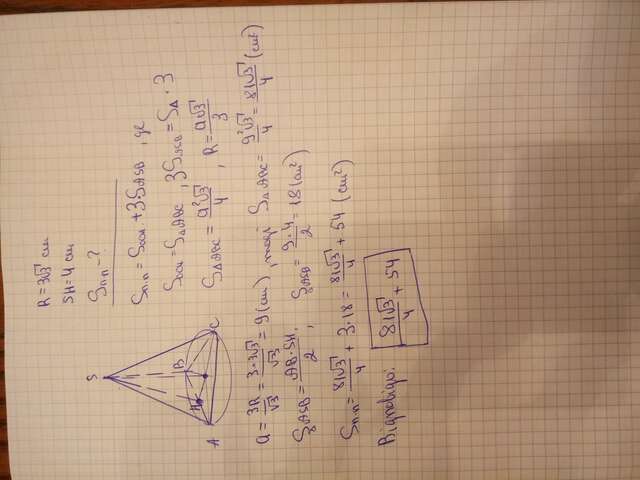 R = 3√3 см
SH = 4 см
Sп.п - ?
Sп.п = Sосн + 3·S△ASB, де
Sосн = S△ABC, 3S△ASB = S△ · 3
S△ABC = a²√3/4, R = a√3/3
a = 3R/√3 = 3·3√3/√3 = 9 (см), тоді S△ABC = 9²√3/4 = 81√3/4 (см²)
S△ASB = AB·SH/2, S△ASB = 9·4/2 = 18 (см²)
Sп.п = 81√3/4 + 3·18 = 81√3/4 + 54 (см²)
Відповідь: 81√3/4 + 54
S
A
B
C
H